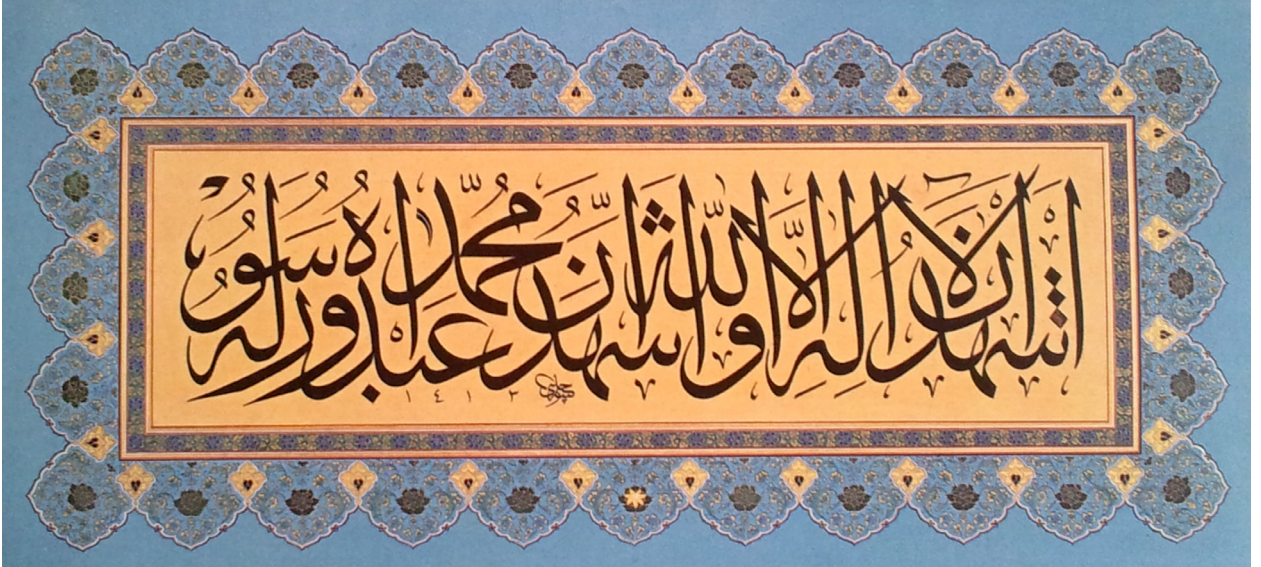 اشهد ان لا اله الا الله و اشهد ان محمدا عبده و رسوله
١٤١٢